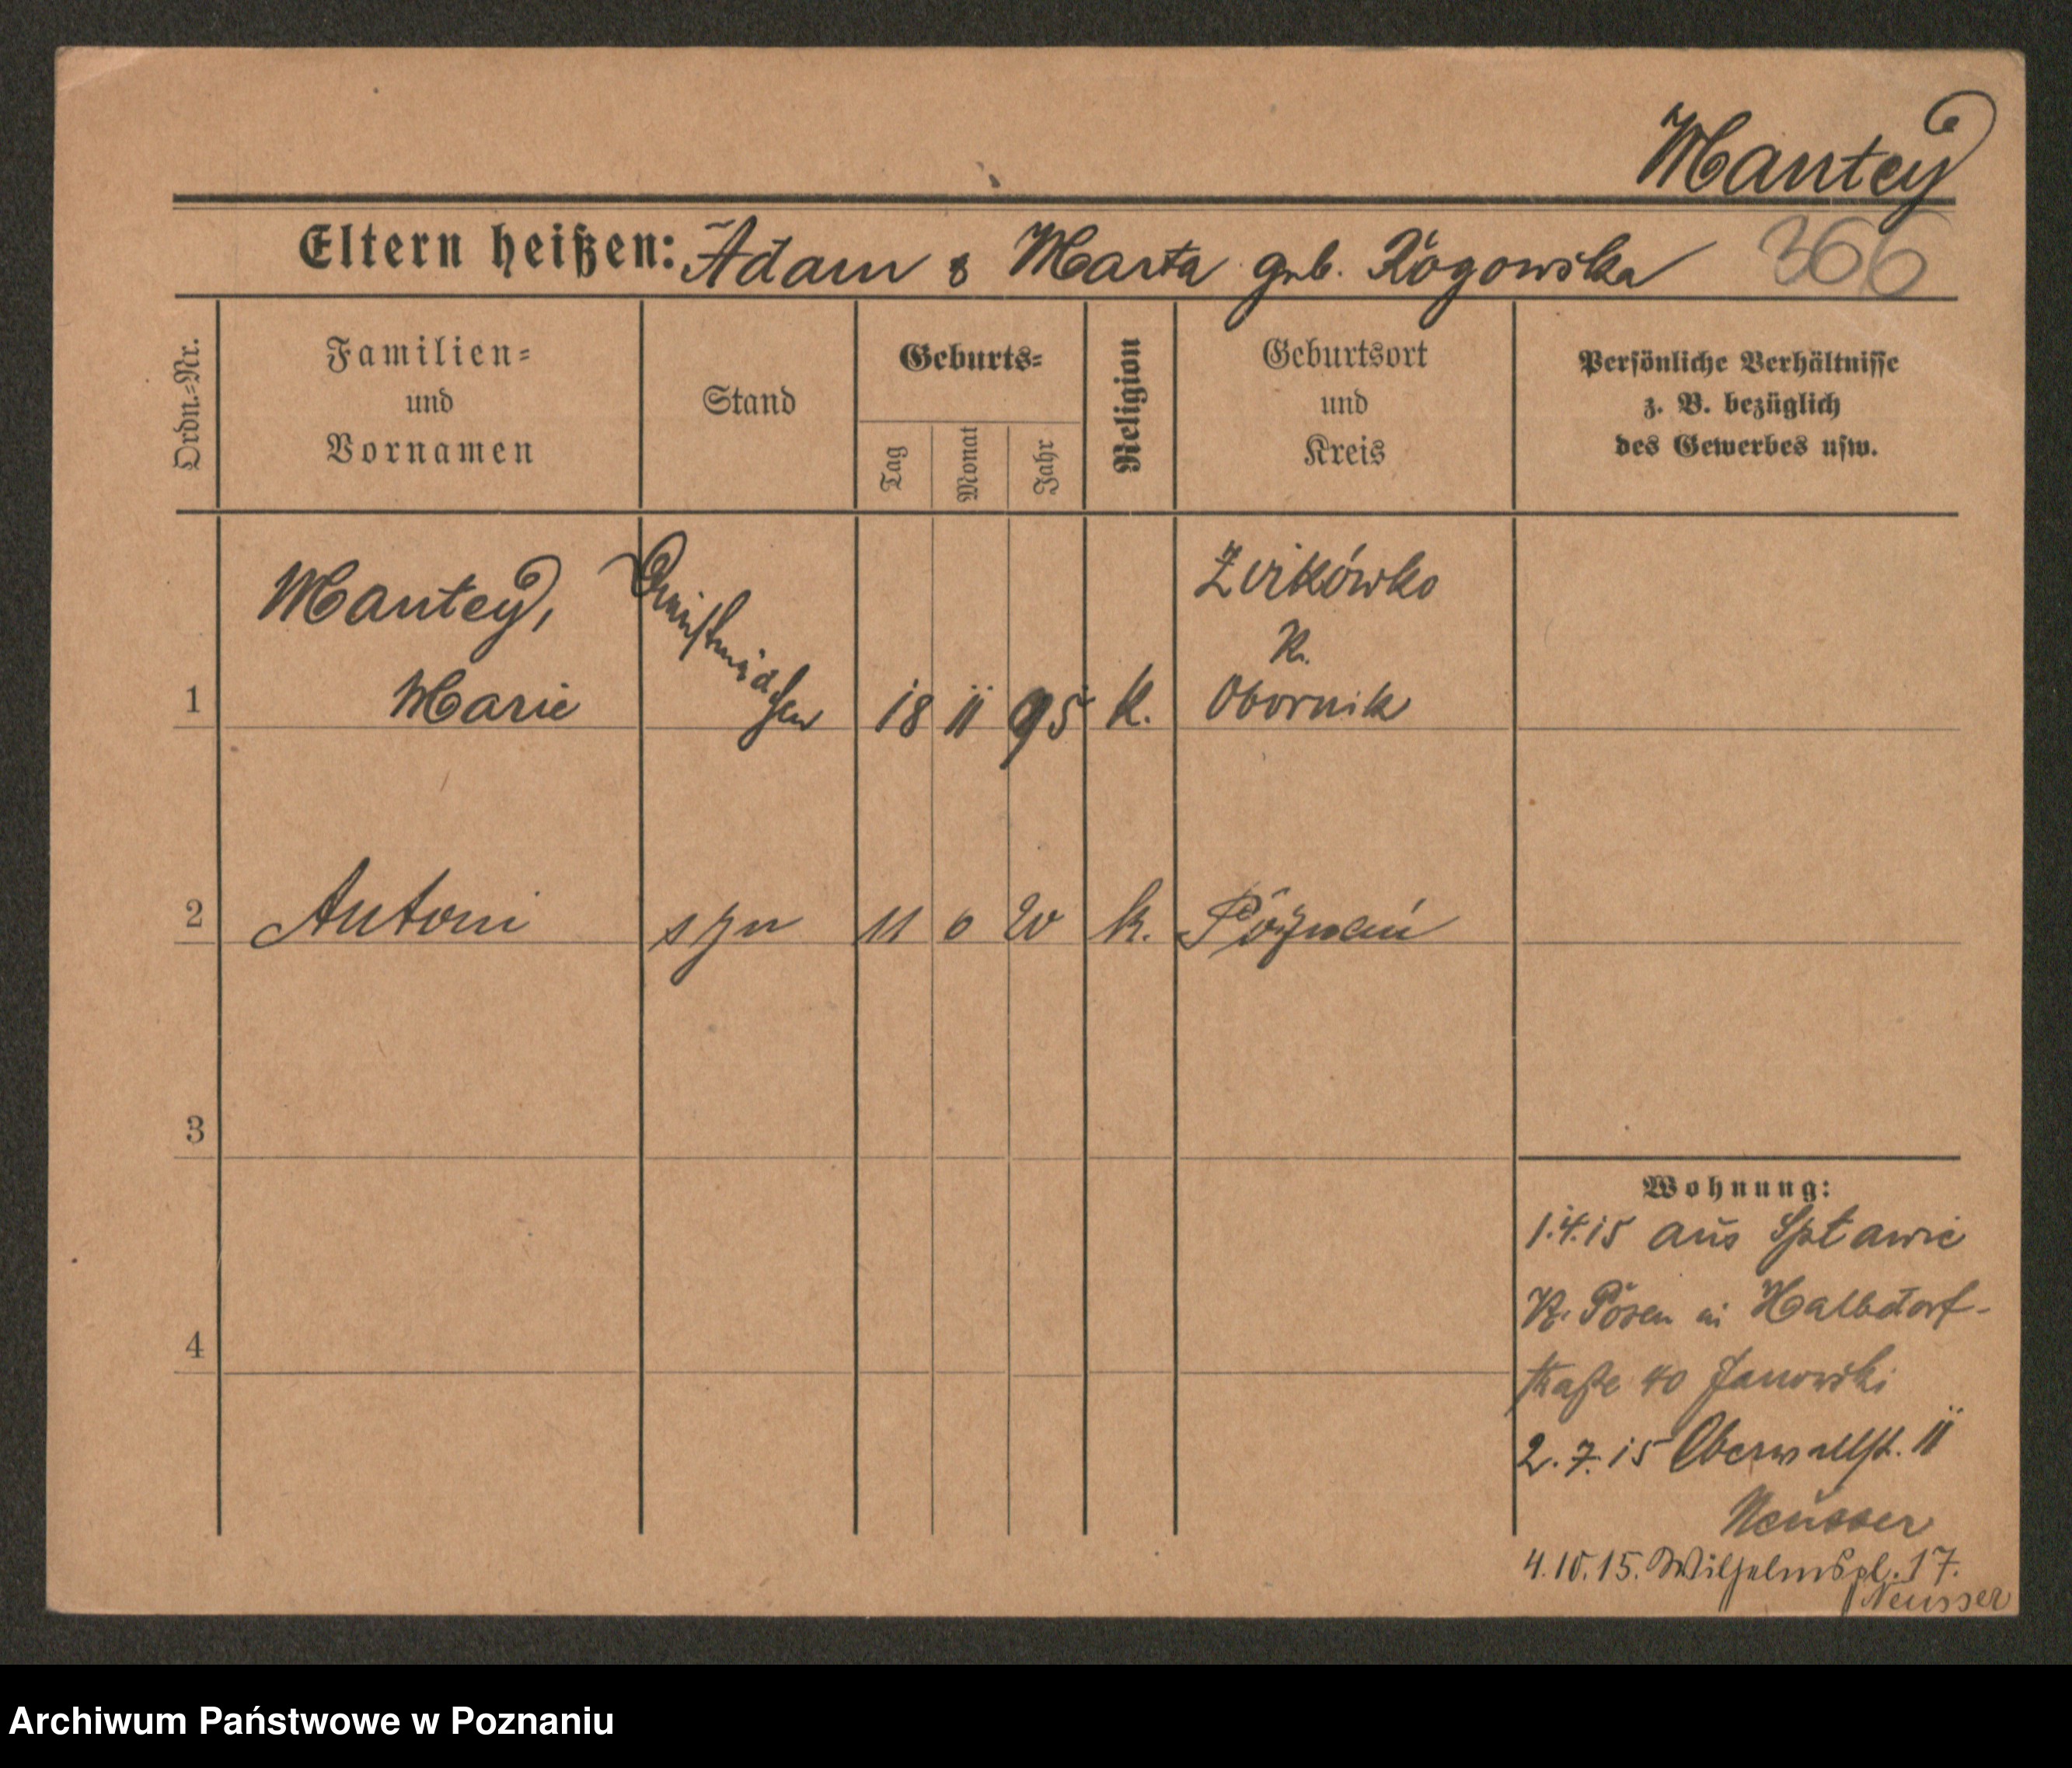 Mantey
Eltern heißen: Adam & Marta geb. Rogowska 366
Ordn.=Nr.
Familien=
und
Vornamen
Stand
Geburts=
Tag
Monat
Jahr
Religion
Geburtsort
und
Kreis
Persönliche Verhältnisse
z. B. bezüglich
des Gewerbes usw.
1
Mantey,
Marie
Dienstmädchen
18 11 95 k.
Kr.
Obornik
2 Antoni syn 11 6 20 k. Poznań
3
4
Wohnung:
1.4.15 aus Spławie
Kr. Posen in Halbdorf-
straße 40 Janowski
2.7.15 Oberwallst. 11
Neusser
4.10.15. Wilhelmspl. 17.
Neusser
Archiwum Państwowe w Poznaniu